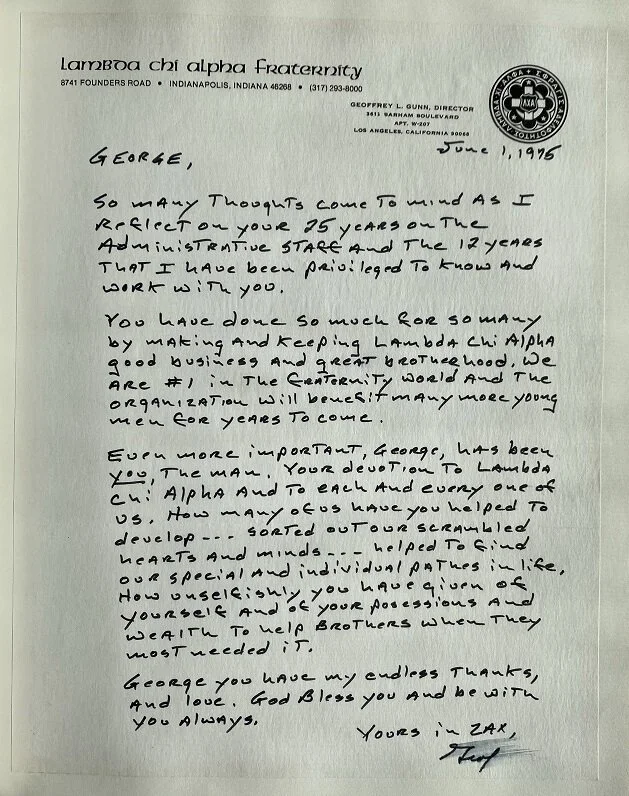 Lambda chi alpha Fraternity
8741 FOUNDERS ROAD • INDIANAPOLIS, INDIANA 46268 • (317) 293-8000
GEOFFREY L. GUNN, DIRECTOR
3411 BARHAM BOULEVARD
APT. W-207
LOS ANGELES, CALIFORNIA 90068
ΛΧΑ
June 1, 1975
GEORGE,
So many Thoughts come To mind As I
Reflect on your 25 years on The
Administrative Staff and The 12 years
That I have been privileged To know And
work with you.
You have done so much for so many
by making and keeping Lambda Chi Alpha
good business and great brotherhood. We
are #1 in The Fraternity world And The
organization will benefit many more young
men for years To come.
Even more important, George, has been
you, The man. Your devotion To Lambda
Chi Alpha And To each And every one of
us. How many of us have you helped To
develop --- sorted out our scrambled
hearts And minds --- helped To find
our special And individual pathes in life,
How unselfishly you have given of
yourself And of your posessions And
wealth To help Brothers when They
most needed it.
George you have my endless Thanks,
And love. God Bless you And be with
you Always.
Yours in ZAX,
Geof